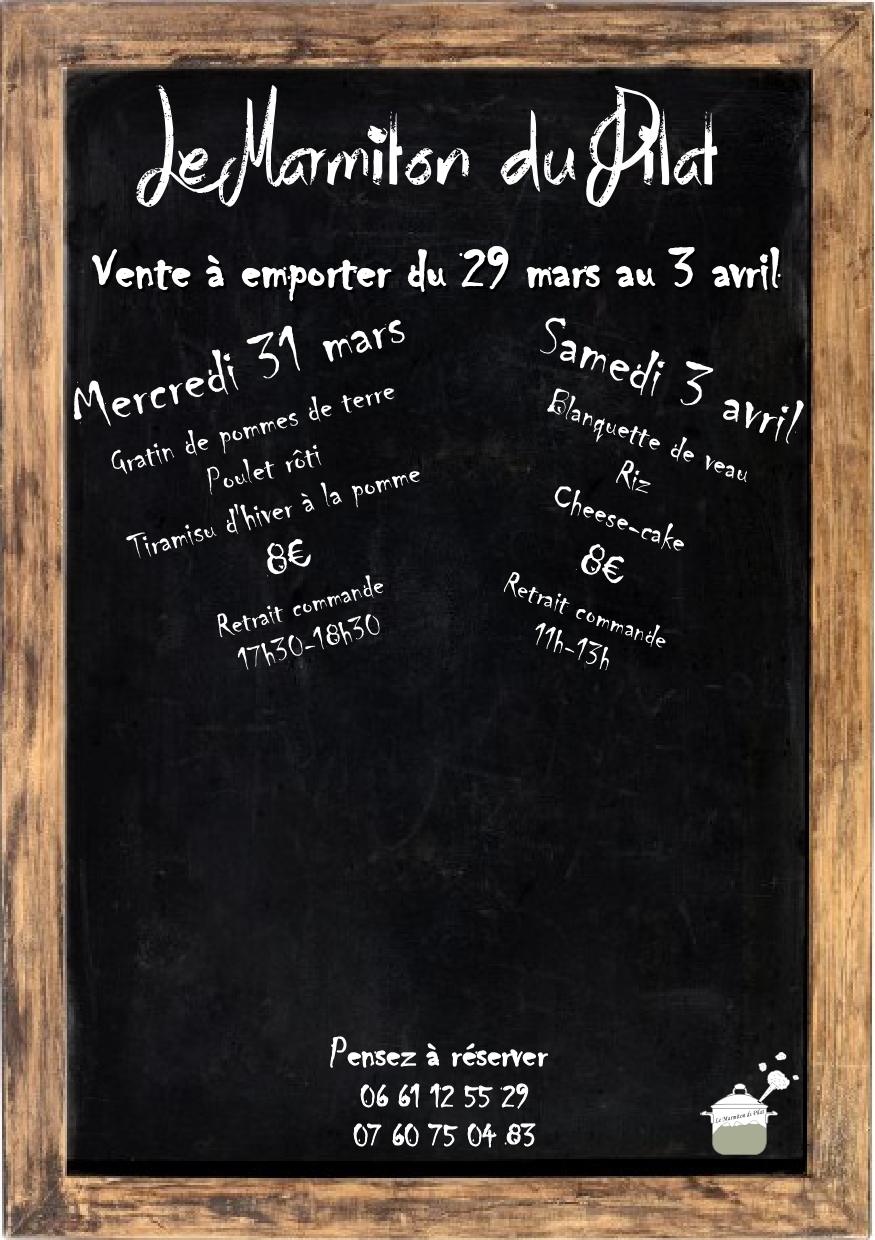 Le Marmiton du Pilat
Vente à emporter du 29 mars au 3 avril
Mercredi 31 mars
Gratin de pommes de terre
Poulet rôti
Tiramisu d'hiver à la pomme
8€
Retrait commande
17h30-18h30
Samedi 3 avril
Blanquette de veau
Riz
Cheese-cake
8€
Retrait commande
11h-13h
Pensez à réserver
06 61 12 55 29
07 60 75 04 83
Le Marmiton du Pilat